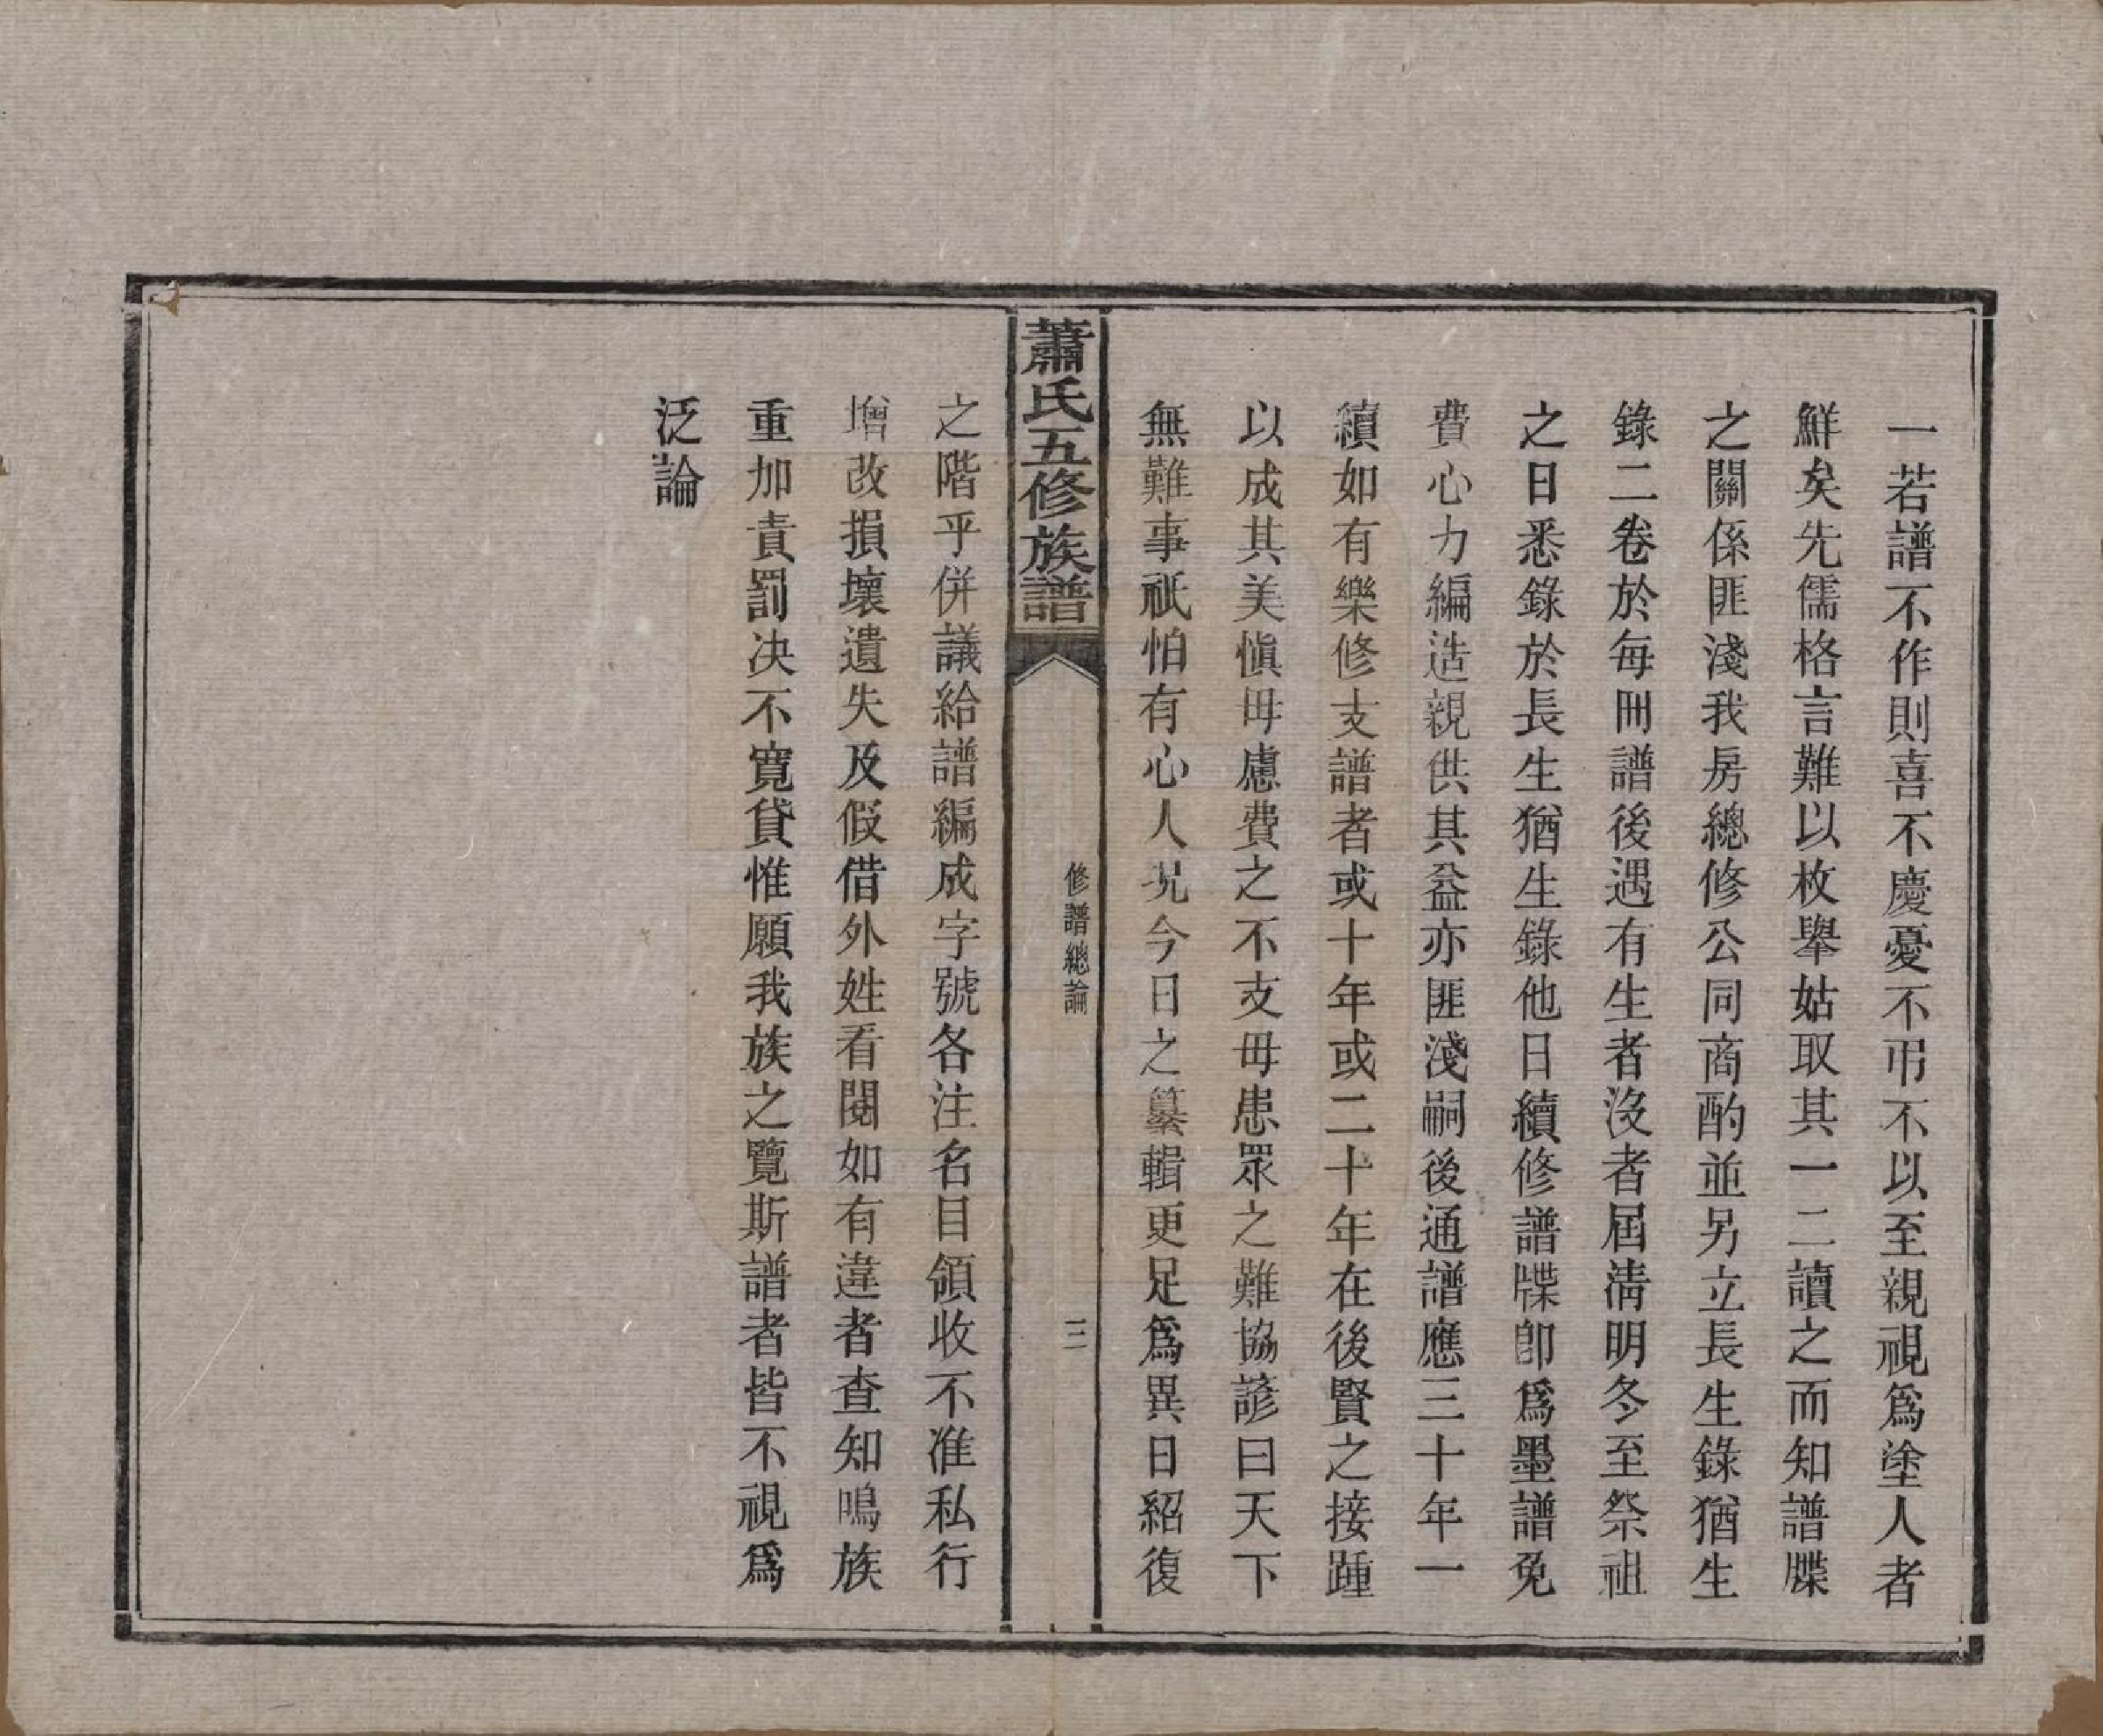 一若譜不作則喜不慶憂不弔不以至親視爲塗人者
鮮矣先儒格言難以枚舉姑取其一二讀之而知譜牒
之關係匪淺我房總修公同商酌並另立長生錄猶生
錄二卷於每冊譜後遇有生者沒者屆淸明冬至祭祖
之日悉錄於長生猶生錄他日續修譜牒卽爲墨譜免
費心力編造親供其益亦匪淺嗣後通譜應三十年一
續如有樂修支譜者或十年或二十年在後賢之接踵
以成其美愼毋慮費之不支毋患眾之難協諺曰天下
無難事祇怕有心人況今日之纂輯更足爲異日紹復
蕭氏五修族譜
修譜總論
三
之階乎併議給譜編成字號各注名目領收不准私行
增改損壞遺失及假借外姓看閱如有違者查知鳴族
重加責罰決不寬貸惟願我族之覽斯譜者皆不視爲
泛論